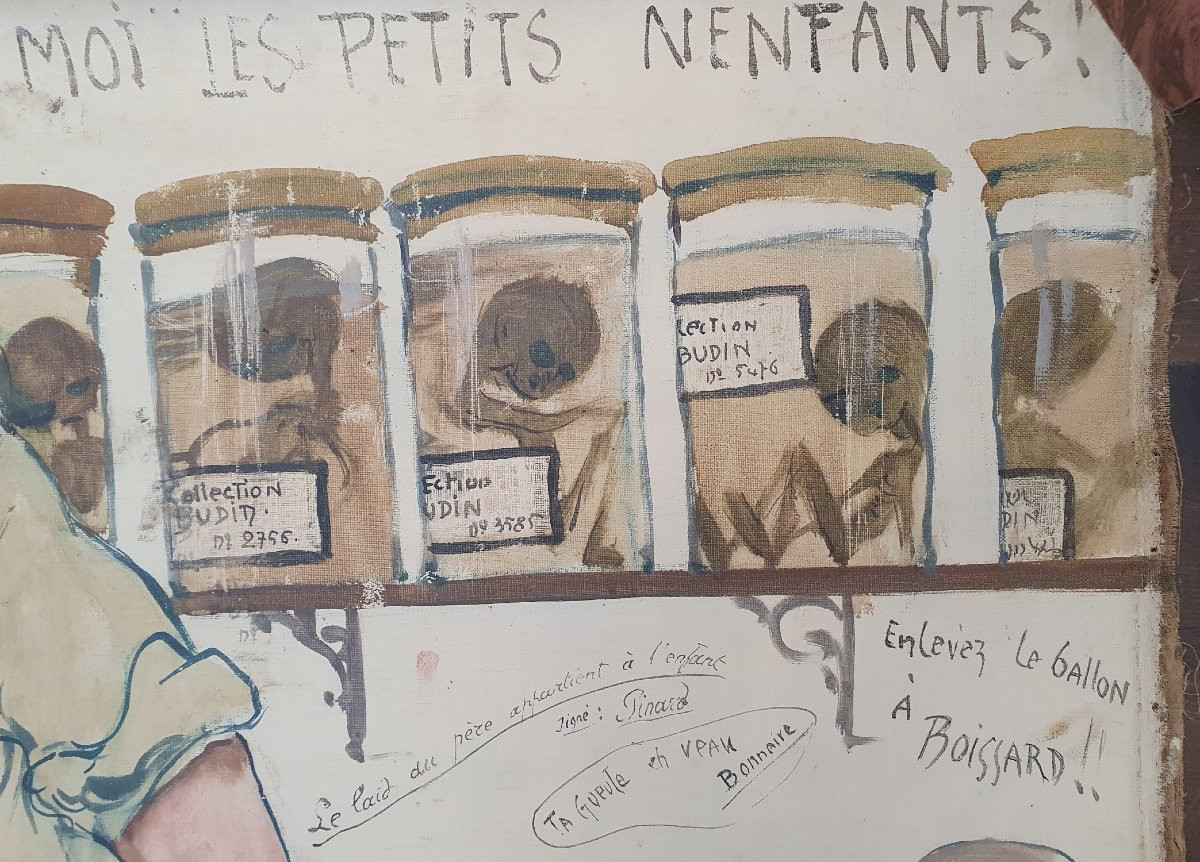 MOÏ LES PETITS NENFANTS!
Collection
BUDIN.
No 2756.
ECTION
UDIN
No 3585
LECTION
BUDIN
No 5476
DIN
Le lait du père appartient à l'enfant
signé: Pinard
TA GUEULE eh VEAU
Bonnaire
EnLevez Le bALLON
À
BOISSARD!!